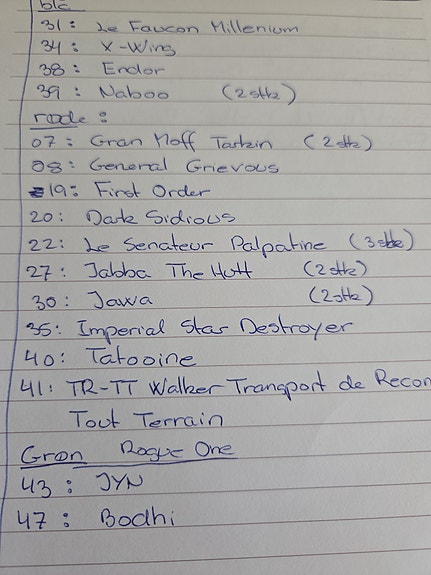 blc
31: Le Faucon Millenium
34: X-Wing
38: Endor
39: Naboo (2 stk)
rode:
07: Gran Moff Tarkin (2 stk)
08: General Grievous
19: First Order
20: Dark Sidious
22: Le Senateur Palpatine (3 stk)
27: Jabba The Hutt (2 stk)
30: Jawa (2 stk)
35: Imperial Star Destroyer
40: Tatooine
41: TR-TT Walker Transport de Recon
Tout Terrain
Gron Rogue One
43: JYN
47: Bodhi